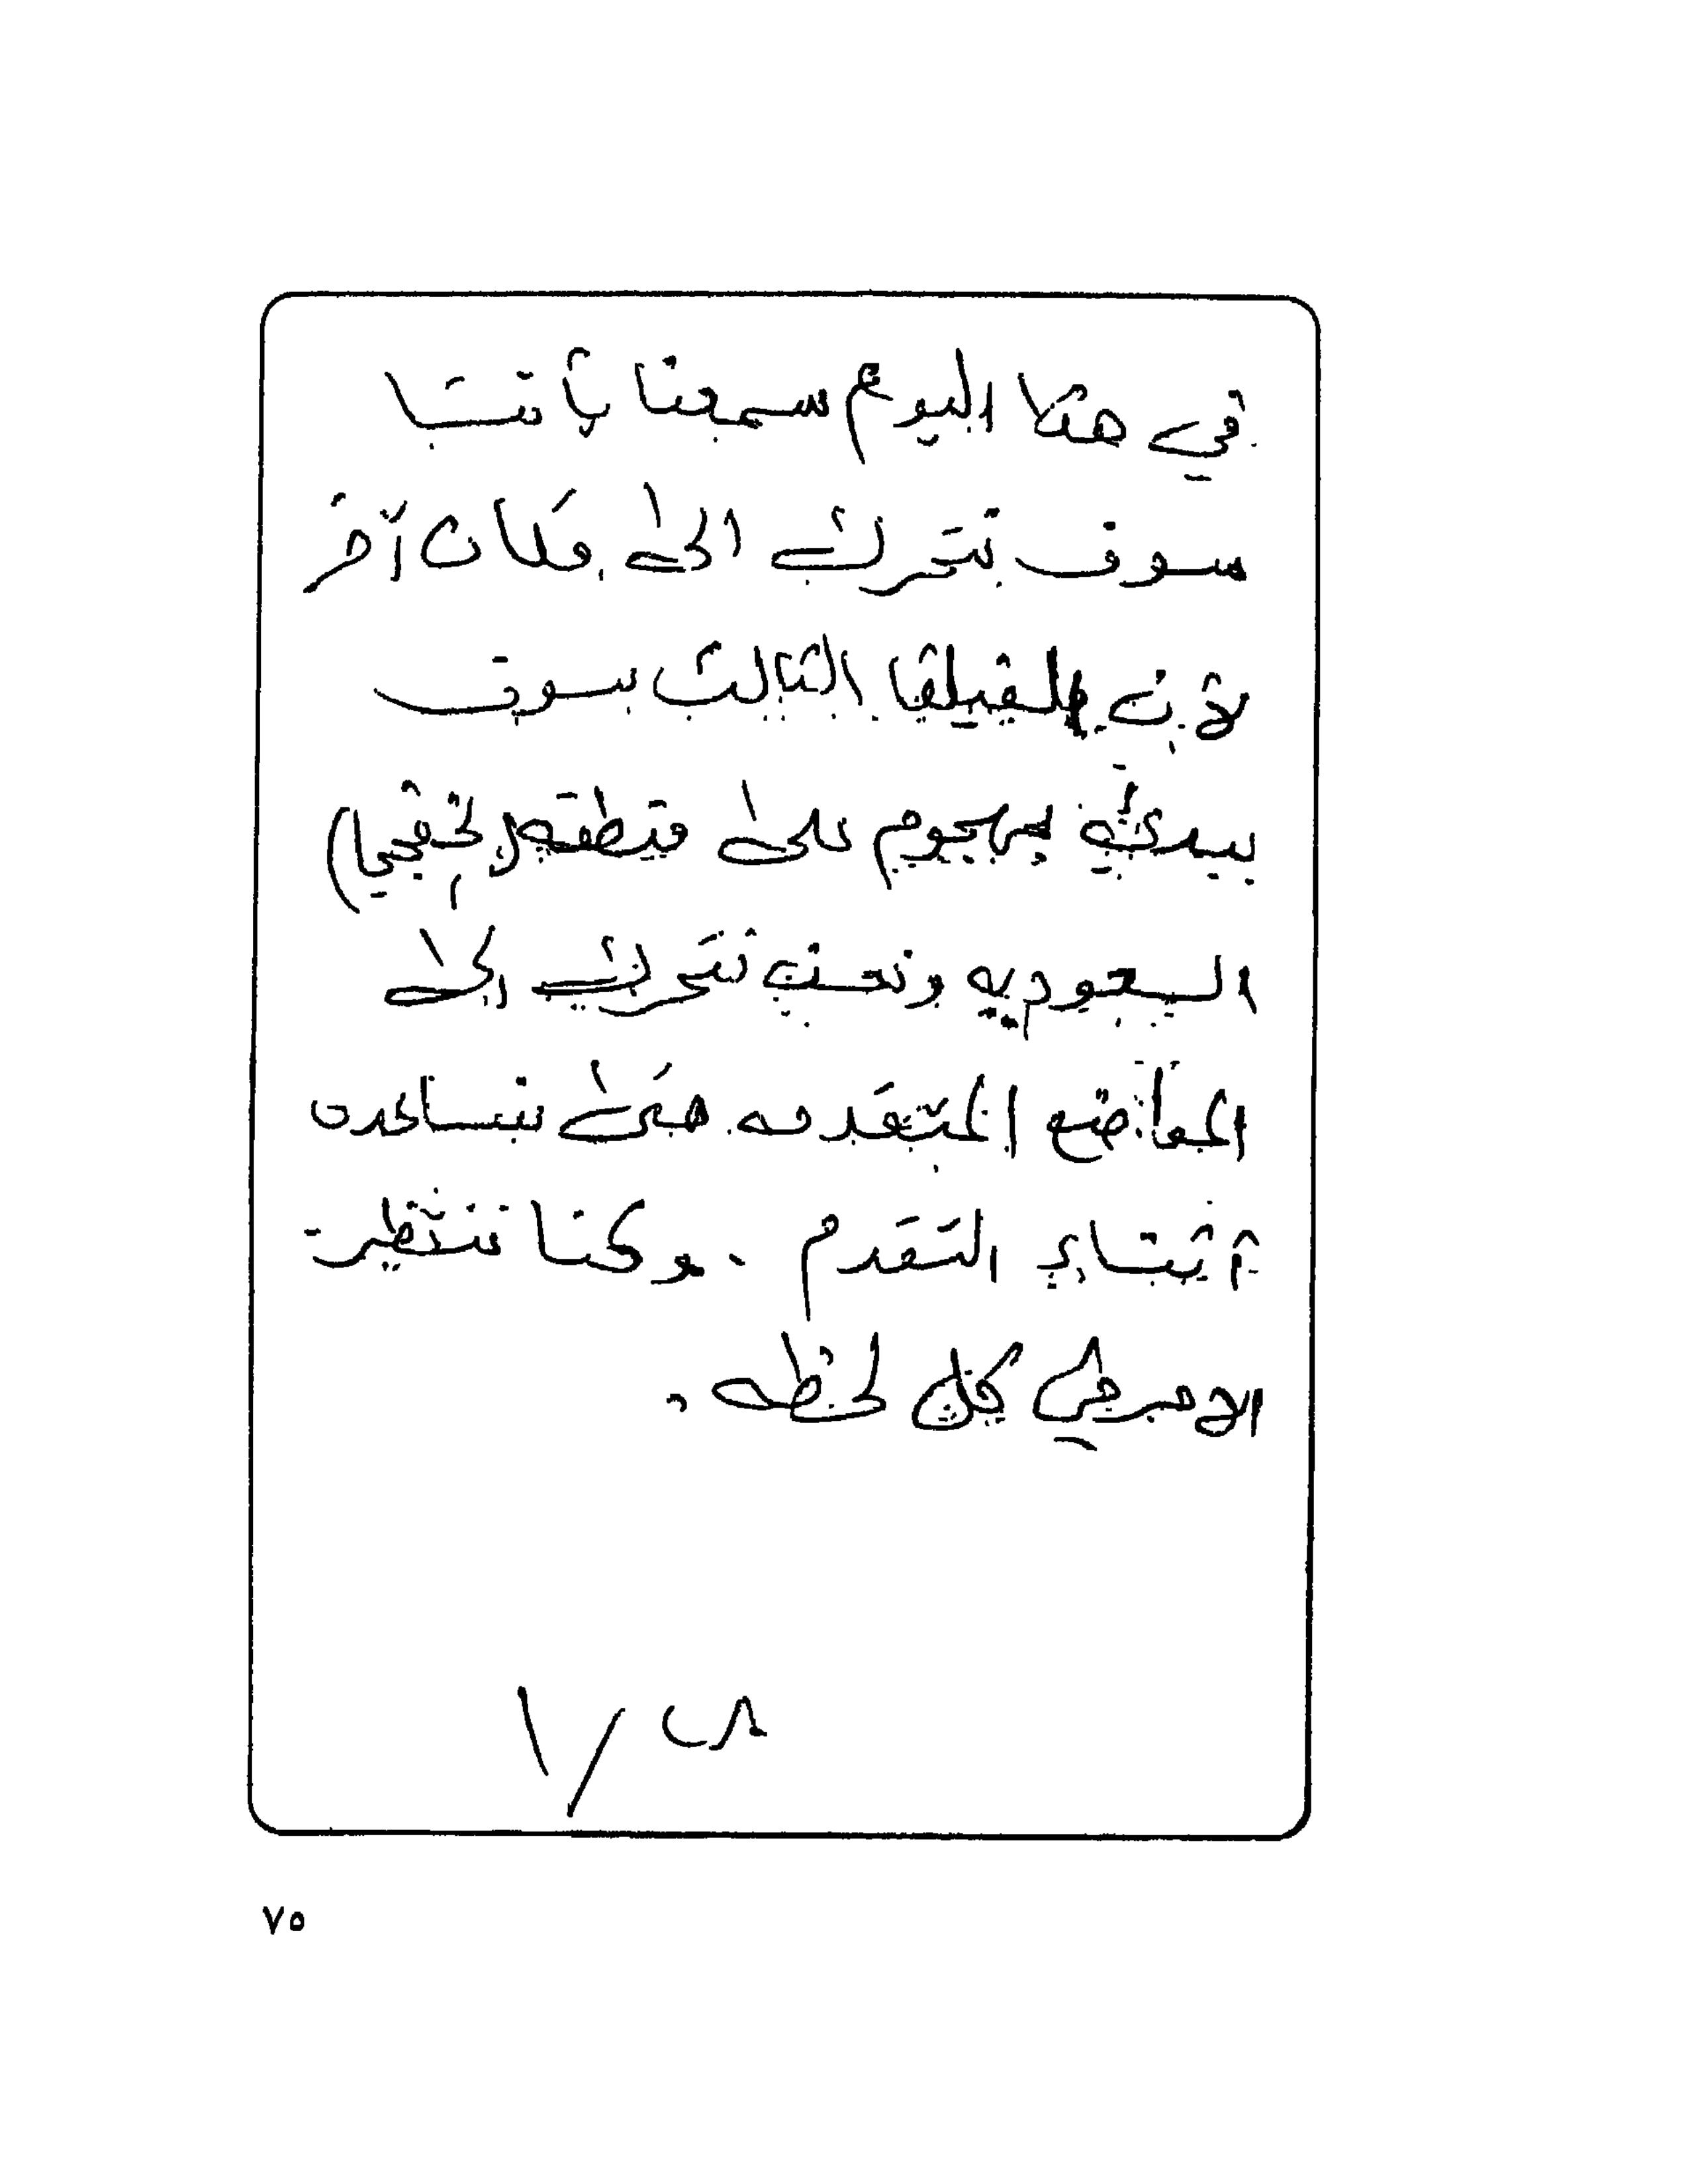 في هذا اليوم سمعنا بأننا
سوف نتحرك الى مكان آخر
لأن الفيلق الثالث سوف
يبدئ بهجوم على منطقه (لخفجي)
السعوديه ونحن نتحرك الى
المواضع المتقدمه حتى نساعدت
أثناء التقدم . وكنا ننتظر
الامر في كل لحظه .
١/
٧٥